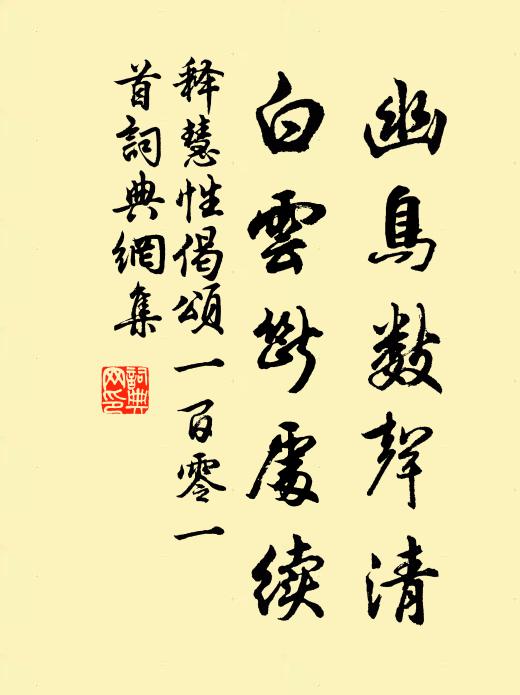 幽鳥数聲清
白雲斷處續
释慧性偈頌一百零一
首詞典網集
詞典
网印